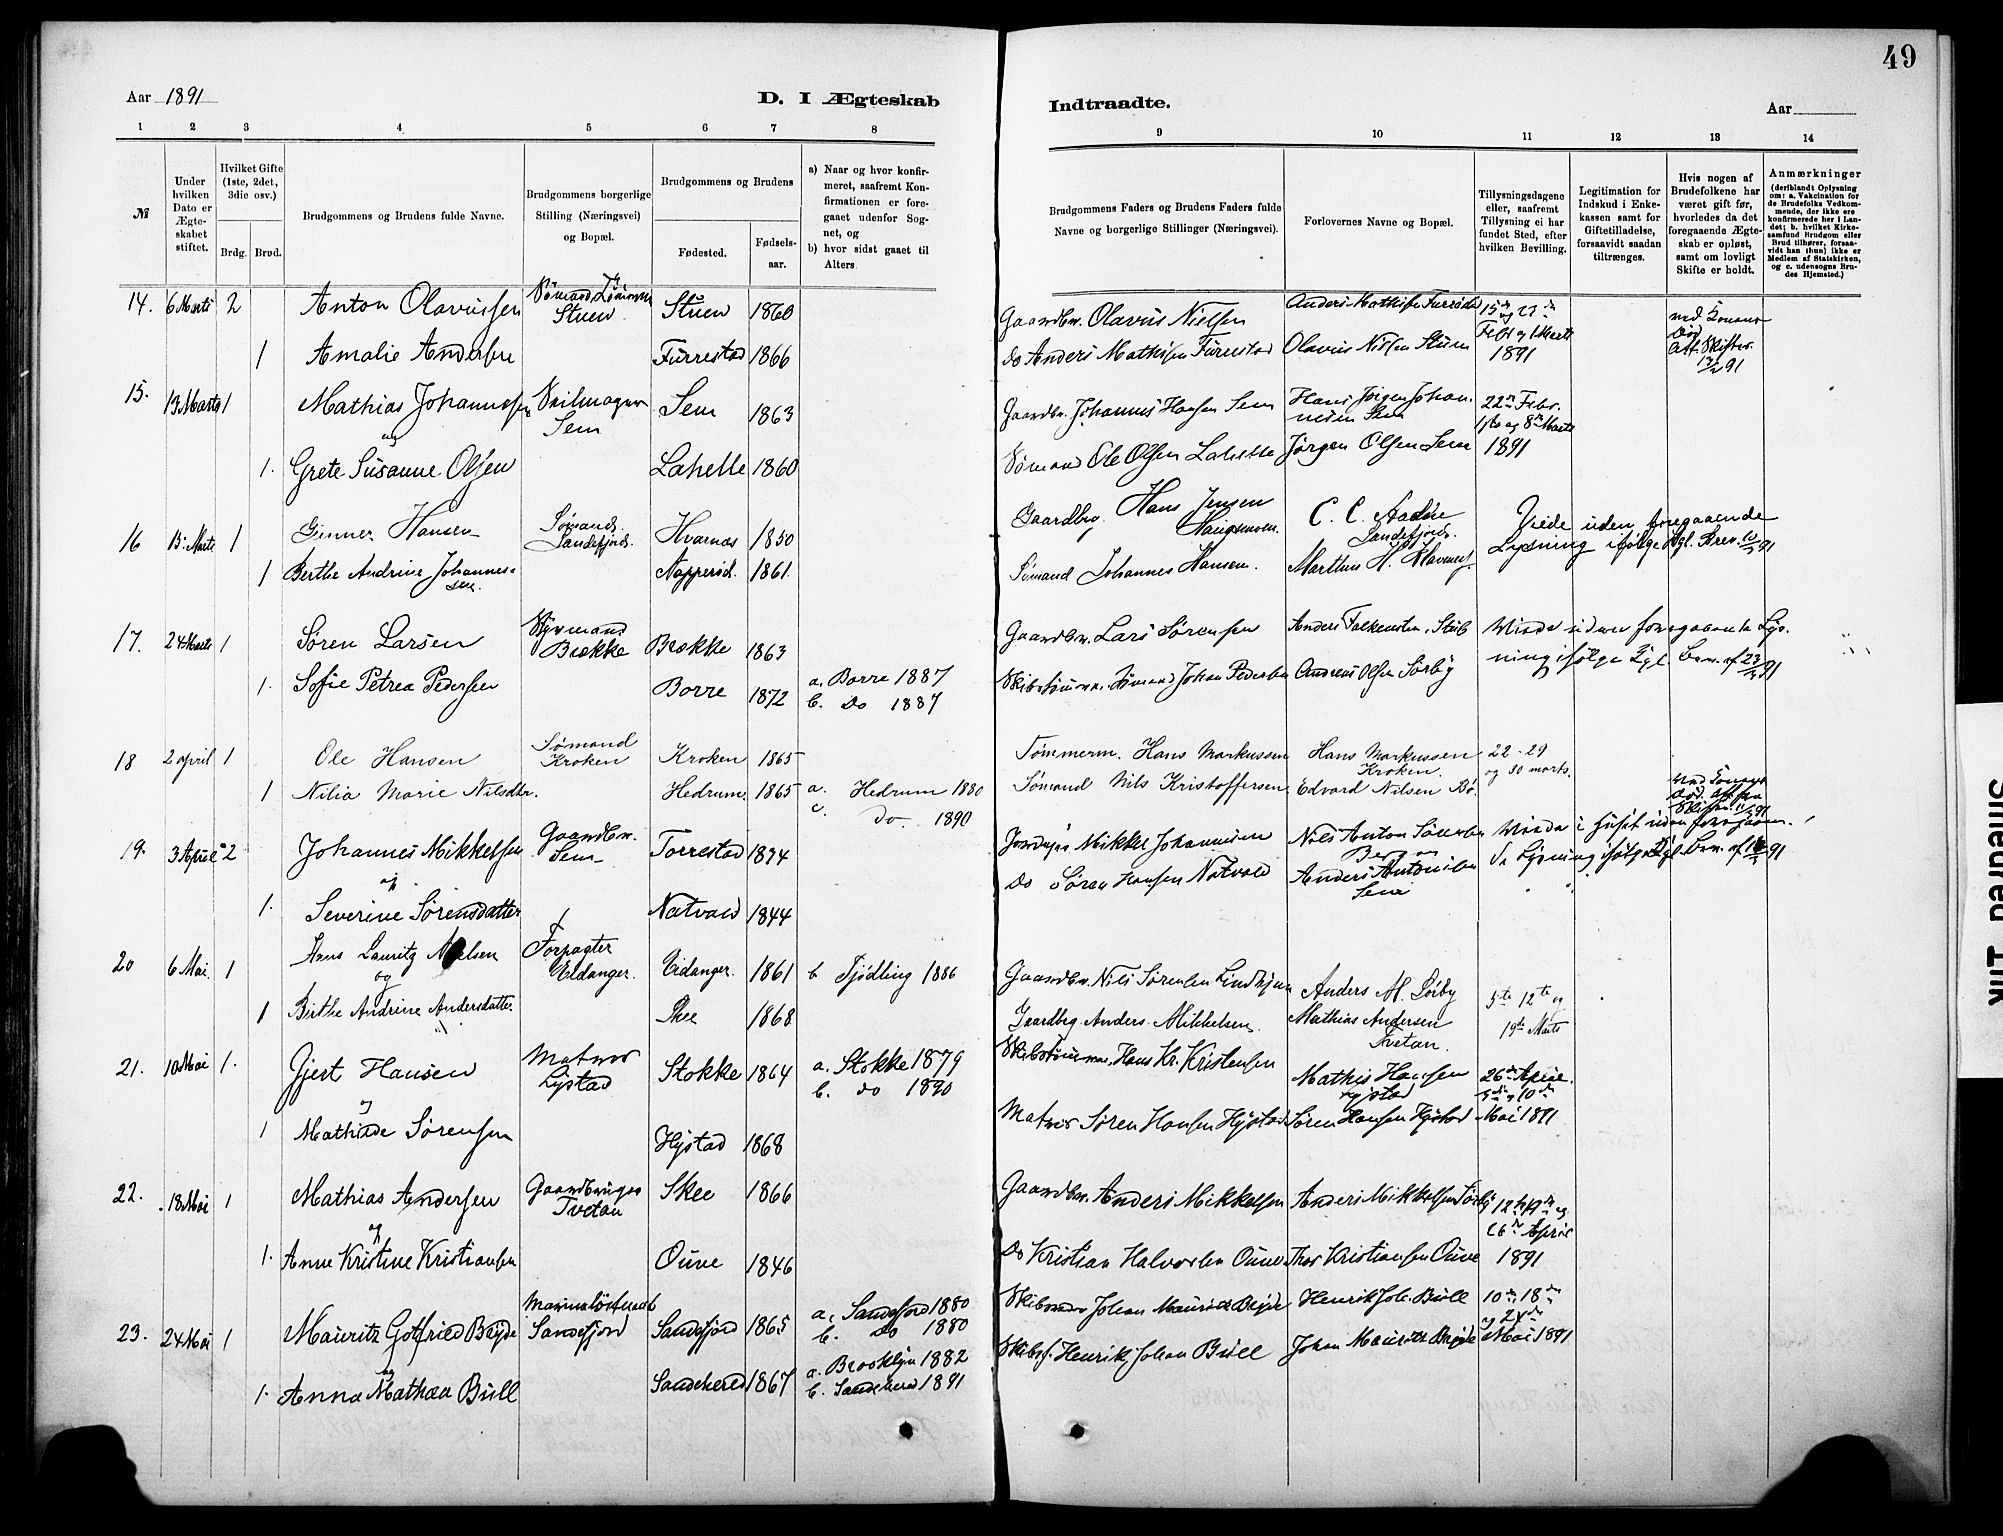 49
Aar 1891
D. I Ægteskab
Indtraadte.
Aar
1 2 3 4 5 6 7 8 9 10 11 12 13 14
№
Under hvilken Dato er Ægteskabet stiftet.
Hvilket Gifte (1ste, 2det, 3die osv.)
Brdg. Brud.
Brudgommens og Brudens fulde Navne.
Brudgommens borgerlige Stilling (Næringsvei) og Bopæl.
Brudgommens og Brudens
Fødested.
Fødselsaar.
a) Naar og hvor konfirmeret, saafremt Konfirmationen er foregaaet udenfor Sognet, og
b) hvor sidst gaaet til Alters.
Brudgommens Faders og Brudens Faders fulde Navne og borgerlige Stillinger (Næringsvei).
Forlovernes Navne og Bopæl.
Tillysningsdagene eller, saafremt Tillysning ei har fundet Sted, efter hvilken Bevilling.
Legitimation for Indskud i Enkekassen samt for Giftetilladelse, forsaavidt saadan tiltrænges.
Hvis nogen af Brudefolkene har været gift før, hvorledes da det foregaaende Ægteskab er opløst, samt om lovligt Skifte er holdt.
Anmærkninger
(deriblandt Oplysning om: a. Vakcination for de Brudefolks Vedkommende, der ikke ere konfirmerede her i Landet; b. hvilket Kirkesamfund Brudgom eller Brud tilhører, forsaavidt han (hun) ikke er Medlem af Statskirken, og c. udensogns Brudes Hjemsted.)
14. 6 Marts 2 Anton Olavussen Stuen Stuen 1860 Gaardbr. Olavus Nielsen Anders Mathisen Furrestad
1 Amalie Andersen Furrestad 1866 do Anders Mathisen Furrestad Olavus Nilsen Stuen 1891
15. 13 Marts 1 Mathias Johannessen Seilmager Sem Sem 1863 Gaardbr. Johannes Hansen Sem Hans Jørgen Johannesen Sem 22 Febr. 1ste og 8de Marts
og
1. Grete Susanne Olsen Lahelle 1860 Sømand Ole Olsen Lahelle Jørgen Olsen Sem 1891
16 15 Marts 1 Gunner Hansen Sømand. Sandefjord. Hvarnæs 1850 Gaardbrg. Hans Jensen C. C. Sandefjord. Viede uden foregaaende Lysning ifølge Kgl. Brev.
1 Berthe Andrine Johannessen. Napperød. 1861. Sømand Johannes Hansen.
17. 24 Marts 1 Søren Larsen Styrmand Brekke Brekke 1863 Gaardbr. Lars Sørensen Anders Falkensten, Stub Viede uden foregaaende Lysning ifølge Kgl. Bev. af 23/3 91
1. Sofie Petrea Pedersen Borre 1872 a. Borre 1887 b. Do 1887 Johan Pedersen Andreas Olsen Sørby
18 2 april 1 Ole Hansen Sømand Kroken Kroken 1865 Tømmerm. Hans Markussen Hans Markussen Kroken. 22 - 29 og 30 marts.
1 Nilia Marie Nilsdtr. Hedrum. 1865 a. Hedrum 1880 do. 1890 Sømand Nils Kristoffersen Edvard Nilsen Bø.
19. 3 April 2 Johannes Mikkelsen Gaardbr. Sem Torrestad 1834 Mikkel Johannesen Nils Anton Viede i Huset uden foregaaende Lysning ifølge Kgl. Bev. af
og
1. Severine Sørensdatter Natvald 1844 Do Søren Hansen Natvald Anders Antonisen Sem
20 6 Mai. 1 Hans Lauritz Nielsen Forpagter Eidanger. Eidanger. 1861 b Tjødling 1886 Gaardbr. Nils Sørensen Anders M. Sørby 5te 12te og
og
1 Birthe Andrine Andersdatter. Skee 1868 Gaardbrg. Anders Mikkelsen. Mathias Andersen Tvetan. 19de Marts
21. 10 Mai 1. Gjert Hansen Matros Lystad Stokke 1864 a. Stokke 1879 b. do 1890 Hans Kr. Kristensen Mathis Hansen 26de April.
og
1 Mathilde Sørensen Hystad 1868 Matros Søren Hansen Hystad Søren Hansen Hystad Mai 1891
22. 18 Mai 1 Mathias Andersen Gaardbruger Tvetan Skee 1866 Gaardbr. Anders Mikkelsen Anders Mikkelsen Sørby 12te 19de og 26de April
og
1. Anne Kristine Kristiansen Ouve 1846 Do Kristian Halvorsen Ouve Thor Kristiansen Ouve 1891
23. 24 Mai 1 Mauritz Gotfried Bryde Sandefjord Sandefjord 1865 a. Sandefjord 1880 b. do 1880 Johan Mauritz Bryde Henrik Joh. Bull 10de 18de og 24de
og
1. Anna Mathea Bull Sandeherred 1867 a. Brooklyn 1882 b. Sandeherred 1891 Skibsf. Henrik Johan Bull Johan Mauritz Bryde Mai 1891